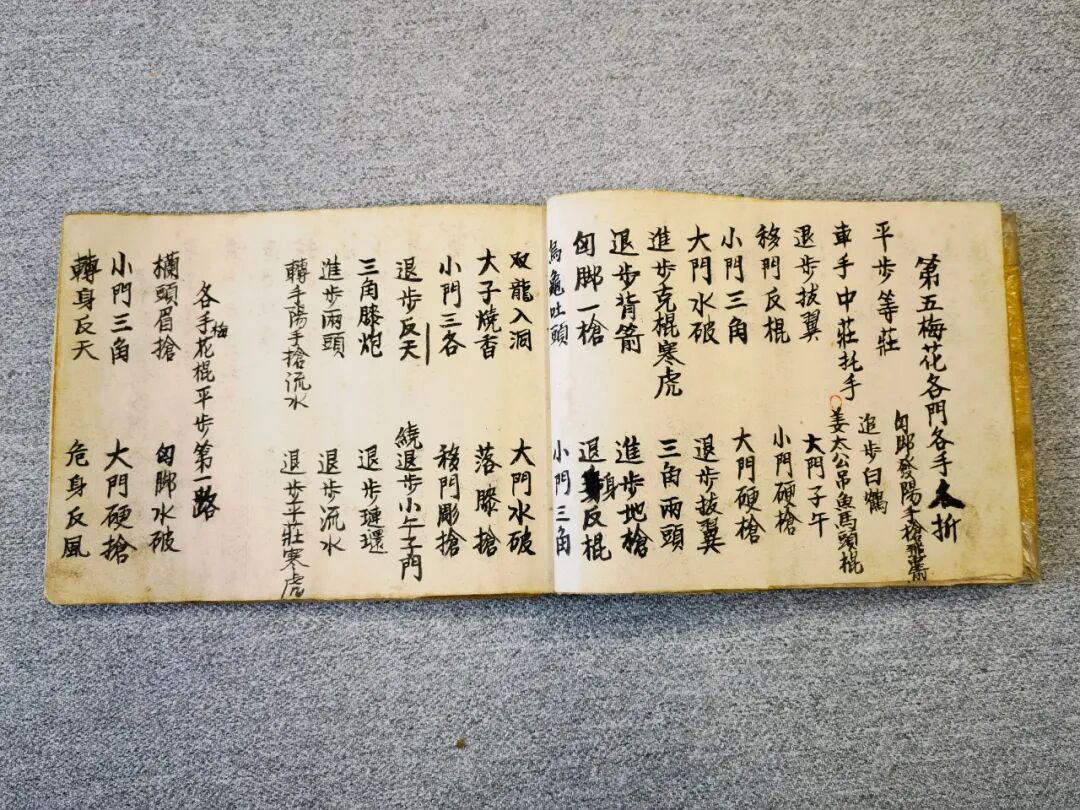 第五梅花各門各手本折
平步等莊
匈脚發陽手槍飛箭
車手中莊扥手
追步白鶴
退步拔翼
姜太公吊魚馬頭棍
移門反棍
大門子午
小門三角
小門硬槍
大門水破
大門硬槍
進步克棍寒虎
退步拔翼
退步背箭
三角兩頭
匈脚一槍
進步地槍
烏龜吐頭
退身反棍
小門三角
双龍入洞
大門水破
大子燒香
落膝槍
小門三各
移門彫搶
退步反天
繞退步小午子門
三角膝炮
退步璉環
進步兩頭
退步流水
轉手陽手搶流水
退步平莊寒虎
各手梅花棍平步第一路
欄頭眉搶
匈脚水破
小門三角
大門硬搶
轉身反天
危身反風